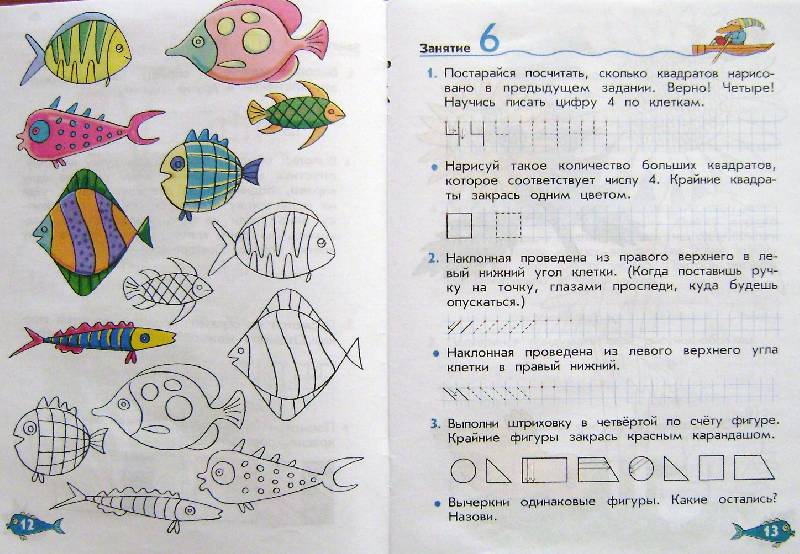 12
Занятие 6
1. Постарайся посчитать, сколько квадратов нарисо-
вано в предыдущем задании. Верно! Четыре!
Научись писать цифру 4 по клеткам.
4 4
• Нарисуй такое количество больших квадратов,
которое соответствует числу 4. Крайние квадра-
ты закрась одним цветом.
2. Наклонная проведена из правого верхнего в ле-
вый нижний угол клетки. (Когда поставишь руч-
ку на точку, глазами проследи, куда будешь
опускаться.)
• Наклонная проведена из левого верхнего угла
клетки в правый нижний.
3. Выполни штриховку в четвёртой по счёту фигуре.
Крайние фигуры закрась красным карандашом.
• Вычеркни одинаковые фигуры. Какие остались?
Назови.
13